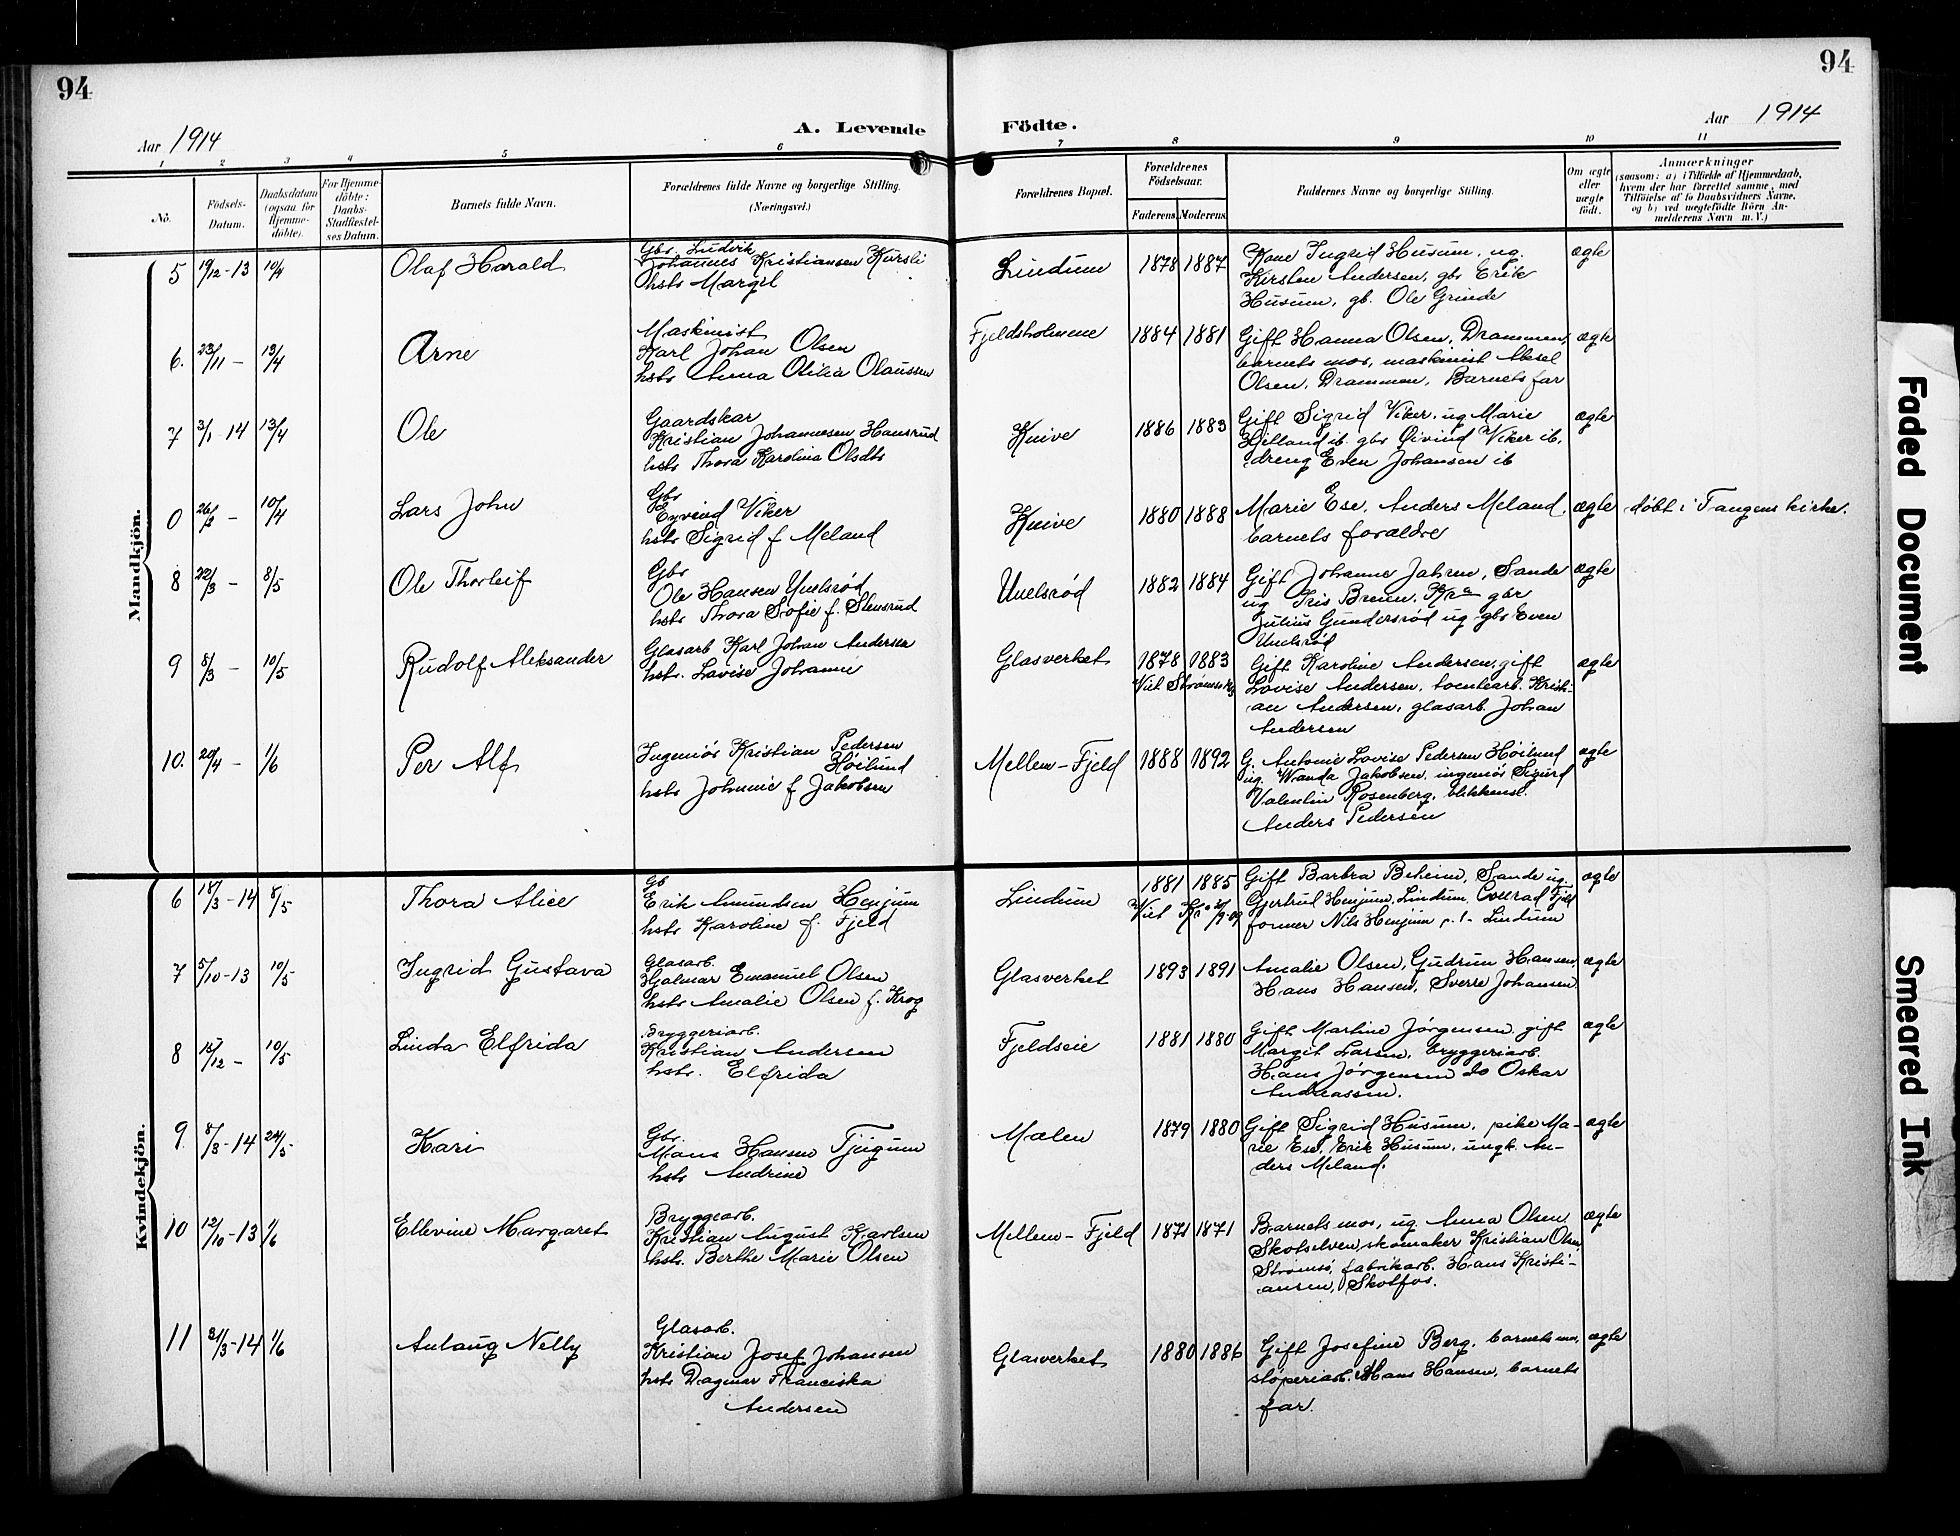 94
94
Aar 1914
A. Levende Födte.
Aar 1914
1 2 3 4 5 6 7 8 9 10 11
No.
Födsels-Datum.
Daabsdatum (ogsaa for Hjemme-döbte).
For Hjemme-döbte: Daabs-Stadfæstel-ses Datum.
Barnets fulde Navn.
Forældrenes fulde Navne og borgerlige Stilling.
(Næringsvei.)
Forældrenes Bopæl.
Forældrenes Födselsaar.
Faderens. Moderens.
Faddernes Navne og borgerlige Stilling.
Om ægte eller uægte födt.
Anmærkninger
(saasom: a) i Tilfælde af Hjemmedaab,
hvem der har forrettet samme, med
Tilföielse af to Daabsvidners Navne,
og b) ved uægtefödte Börn An-
melderens Navn m. V.)
Mandkjön.
5 19/12-13 10/4 Olaf Harald
Gbr. Ludvik
Johannes Kristiansen Kursli
hstr Margit
Lindum 1878 1887
Kone Ingrid Husum, ug.
Kirsten Andersen, gbr Erik
Husum, gb. Ole Grinde
ægte
6. 23/11 - 13/4 Arne
Maskinist
Karl Johan Olsen
hstr Anna Otilia Olaussen
Fjeldsholmene 1884 1881
Gift Hanna Olsen, Drammen,
barnets mor, maskinist Aksel
Olsen, Drammen, Barnets far
ægte
7 3/1-14 13/4 Ole
Gaardskar
Kristian Johannesen Hansrud
hstr Thora Karolina Olsdtr
Knive 1886 1883
Gift Sigrid Viker, ug Marie
Hilland ib. gbr Øivind Viker ib,
dreng Even Johansen ib
ægte
0 26/2 - 10/4 Lars John
Gbr
Eyvind Viker
hstr Sigrid f Meland
Knive 1880 1888
Marie Ese, Anders Meland,
barnets foraldre
ægte døbt i Tangens kirke.
8 22/3 - 8/5 Ole Thorleif
Gbr
Ole Hansen Unelsrød
hstr Thora Sofie f. Stensrud
Unelsrød 1882 1884
Gift Johanne Jahren, Sande
ug Iris Breien, Kra gbr
Julius Gundersrød ug gbr Even
Unelsrød
ægte
9 8/3 - 10/5 Rudolf Aleksander
Glasarb Karl Johan Andersen
hstr. Lovise Johanne
Glasverket 1878 1883
Viet Strømsø
Gift Karoline Andersen, gift
Lovise Andersen, tomtearb. Kristi-
an Andersen, glasarb. Johan
Andersen
ægte
10. 20/4 - 1/6 Per Alf
Ingeniør Kristian Pedersen
Høilund
hstr Johanne f Jakobsen
Mellem-Fjeld 1888 1892
G. Antonie Lovise Pedersen Høilund
ug. Wanda Jakobsen, ingeniør Sigurd
Valentin Rosenberg, blikkensl.
Anders Pedersen
ægte
Kvindekjön.
6 18/3-14 8/5 Thora Alice
Gb
Erik Amundsen Henjum
hstr Karoline f. Fjeld
Lindum 1881 1885
Viet Kra
Gift Barbra Beheim, Sande ug.
Gjertrud Henjum, Lindum, Conrad Fjeld
former Nils Henjum p. t. Lindum
ægte
7 5/10-13 10/5 Ingrid Gustava
Glasarb.
Hjalmar Emanuel Olsen
hstr Amalie Olsen f. Krog
Glasverket 1893 1891
Amalie Olsen, Gudrun Hansen,
Hans Hansen, Sverre Johansen
ægte
8 15/12 - 10/5 Linda Elfrida
Bryggeriarb.
Kristian Andersen
hstr. Elfrida
Fjeldseie 1881 1880
Gift Martine Jørgensen, gift
Margit Larsen, bryggeriarb.
Hans Jørgensen do Oskar
Andreassen.
ægte
9. 8/3-14 24/5 Kari
Gbr.
Mons Hansen Tjugum
hstr Andrine
Mælen 1879 1880
Gift Sigrid Husum, pike Ma-
rie Ese, Erik Husum, ungk. An-
ders Meland.
ægte
10 12/10-13 1/6 Ellevine Margaret
Bryggearb.
Kristian August Karlsen
hstr. Berthe Marie Olsen
Mellem-Fjeld 1871 1871
Barnets mor, ug. Anna Olsen
Skotselven, skomaker Kristian Olsen,
Strømsø, fabrikarb. Hans Kristi-
ansen, Skotfos.
ægte
11 31/3-14 1/6 Aslaug Nelly
Glasarb.
Kristian Josef Johansen
hstr Dagmar Franciska
Andersen
Glasverket 1880 1886
Gift Josefine Berg, barnets mor,
støperiarb. Hans Hansen, barnets
far.
ægte
Faded Document
Smeared Ink